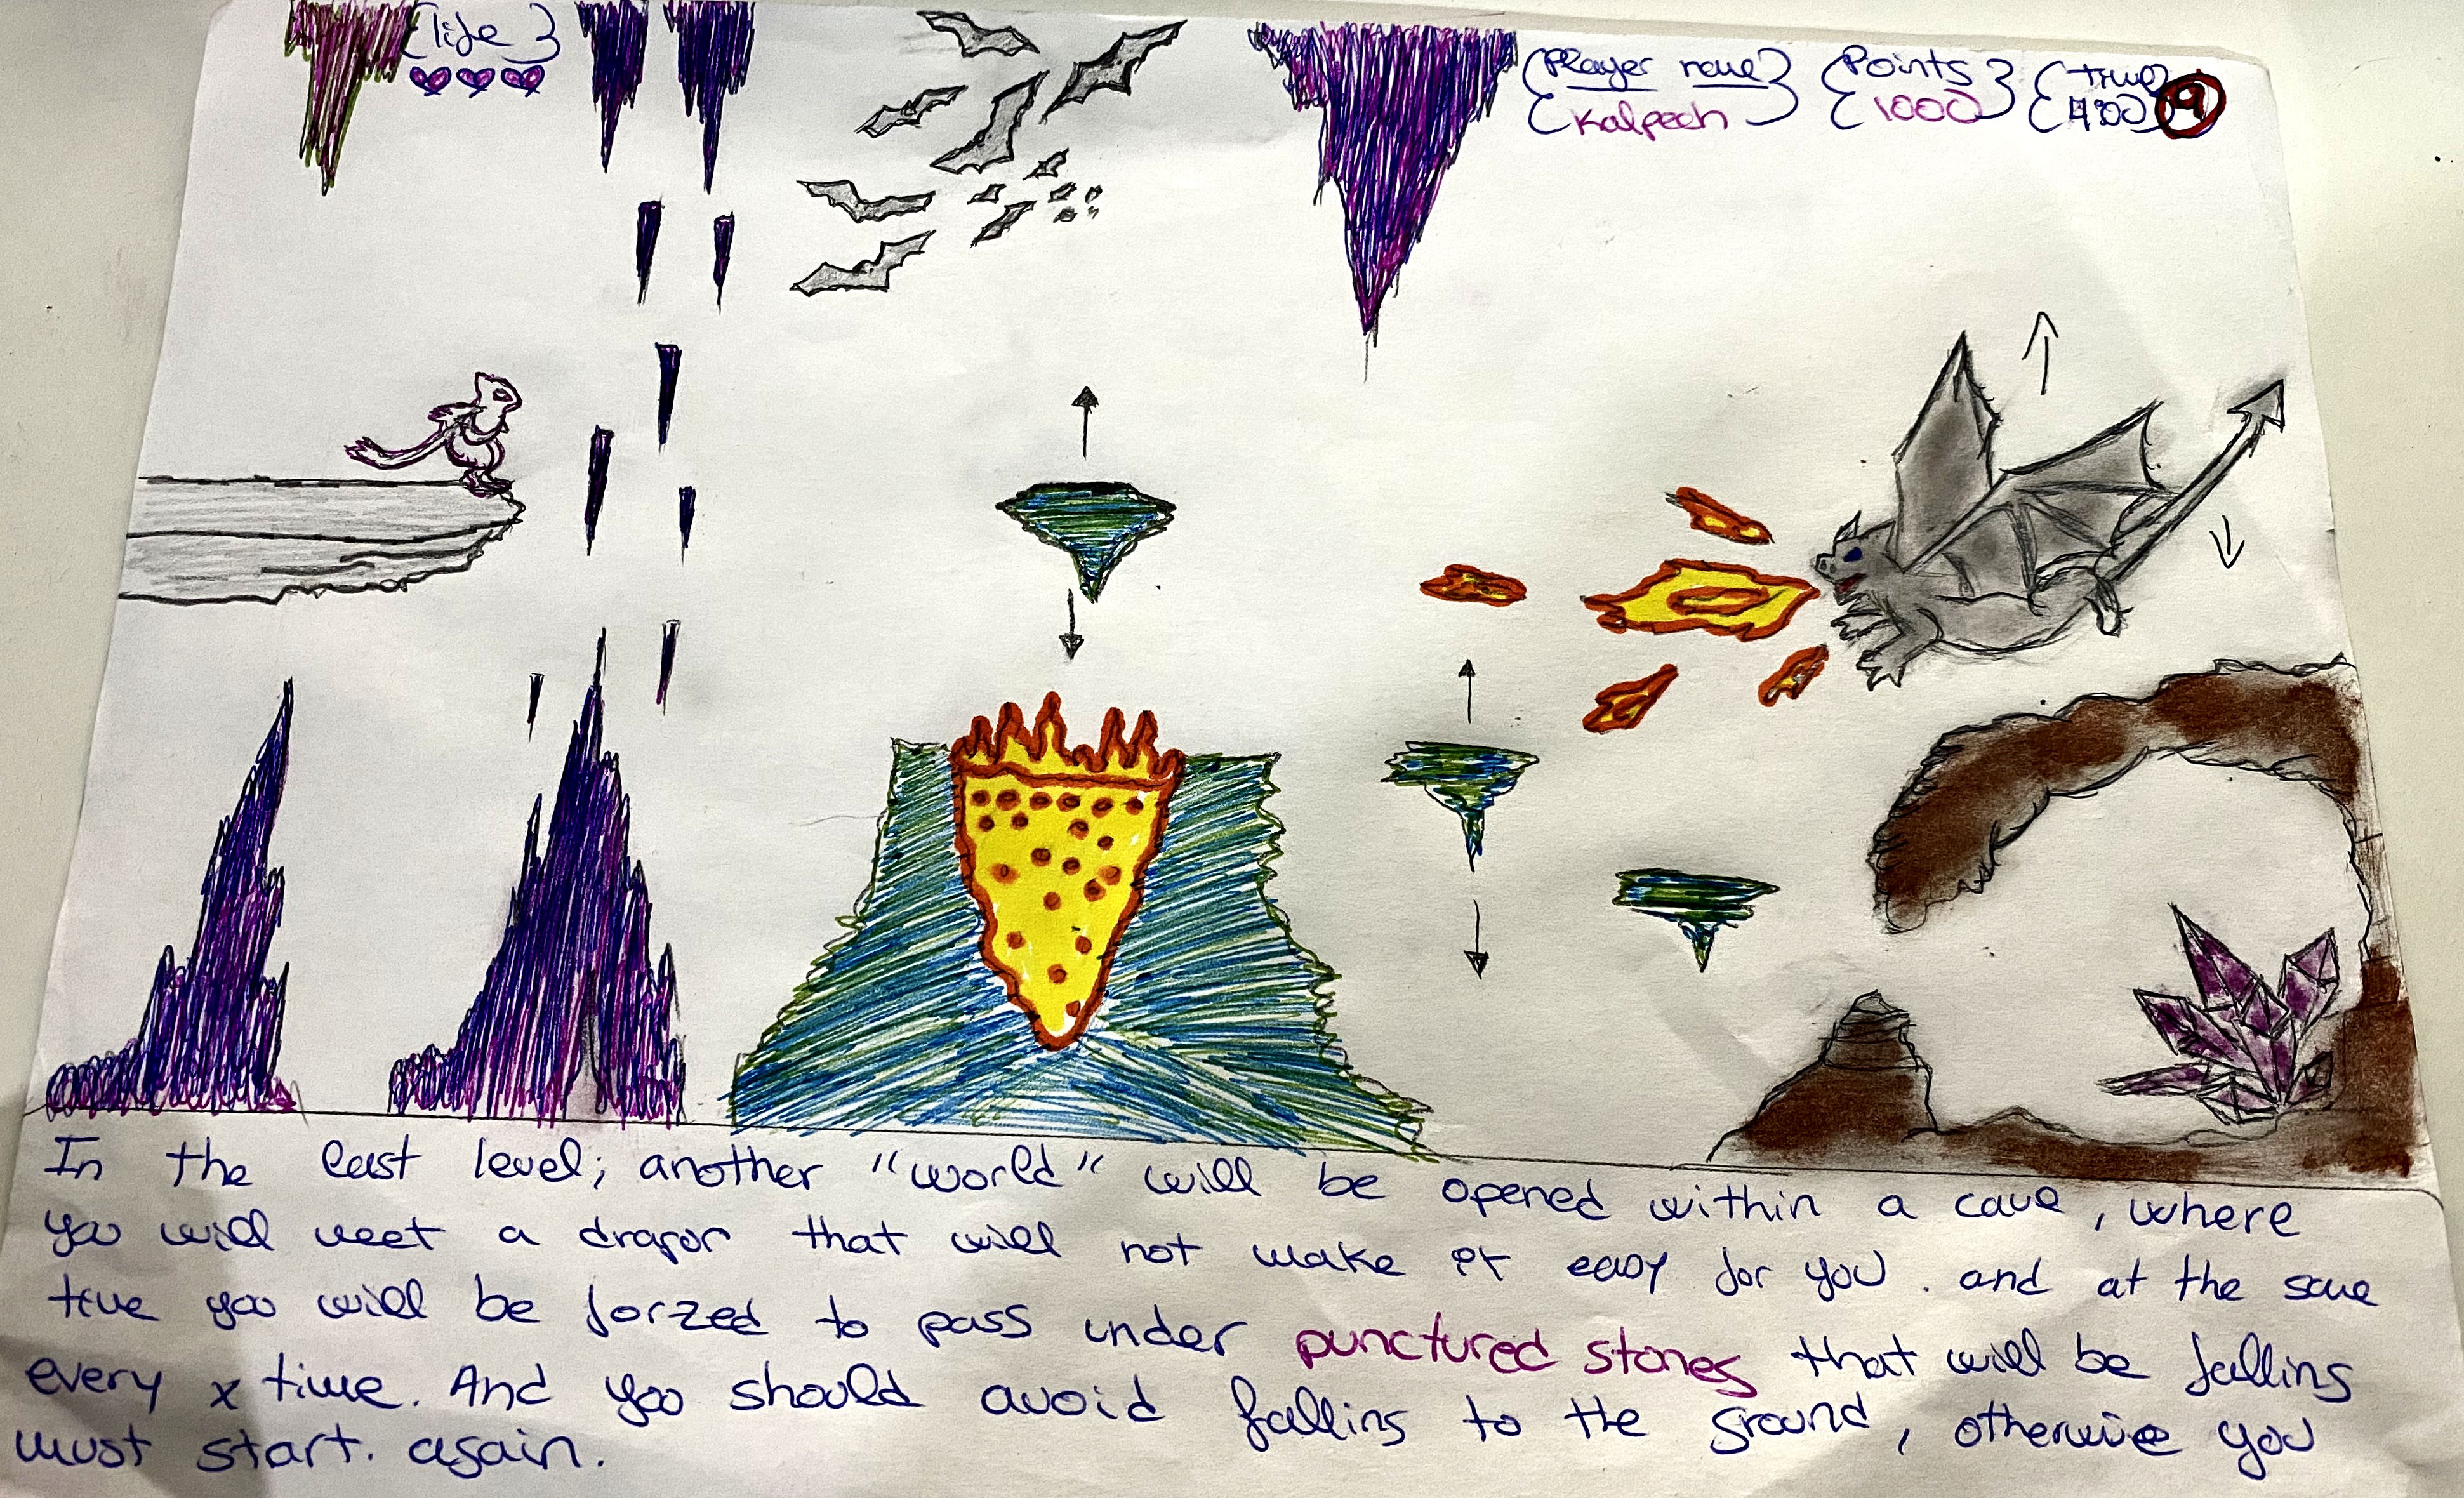 {life} {Player name} {Points} {time}
{Kalpech} {1000} 9
In the last level; another "world" will be opened within a cave, where
you will meet a dragon that will not make it easy for you. and at the same
time you will be forzed to pass under punctured stones that will be falling
every x time. And you should avoid falling to the ground, otherwise you
must start. again.